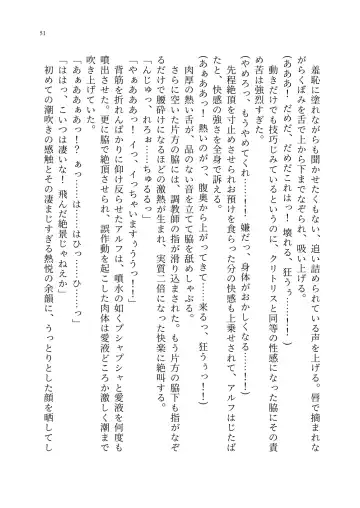 51
羞恥に塗れながらも聞かせたくもない、追い詰められている声を上げる。唇で摘まれな
がらくぼみを舌で上から下までなぞられ、吸い上げる。
（あああ！ だめだ、だめだこれはっ！ 壊れる、狂うぅ……！！）
動きだけでも技巧じみているというのに、クリトリスと同等の性感になった脇にその責
め苦は強烈すぎた。
（やめろっ、もうやめてくれ……！！ 嫌だっ、身体がおかしくなる……！！）
先程絶頂を寸止めさせられお預けを食らった分の快感も上乗せされて、アルフはじたば
たと、快感の強さを全身で訴える。
（あぁああっ！ 熱いのがっ、腹奥から上がってきて……来るっ、狂うぅっ！！）
肉厚の熱い舌が、品のない音を立てて脇を舐めしゃぶる。
さらに空いた片方の脇には、調教師の指が滑り込まされた。もう片方の脇下も指がなぞ
るだけで腰砕けになるほどの激熱が生まれ、実質二倍になった快楽に絶叫する。
「んじゅっ、れろぉ……ちゅるるっ」
「やぁああああっ！ イつ、イっちゃいますぅぅうっ！！」
背筋を折れんばかりに仰け反らせたアルフは、噴水の如くブシャブシャと愛液を何度も
噴出させた。更に脇で絶頂させられ、誤作動を起こした肉体は愛液どころか激しく潮まで
吹き上げていた。
「あ、あぁっ……！？ ぁっ……は……はひっ……ひ……っ」
「ははっ、こいつは凄いな！ 飛んだ絶景じゃねえか」
初めての潮吹きの感触とその凄まじすぎる熱悦の余韻に、うっとりとした顔を晒して